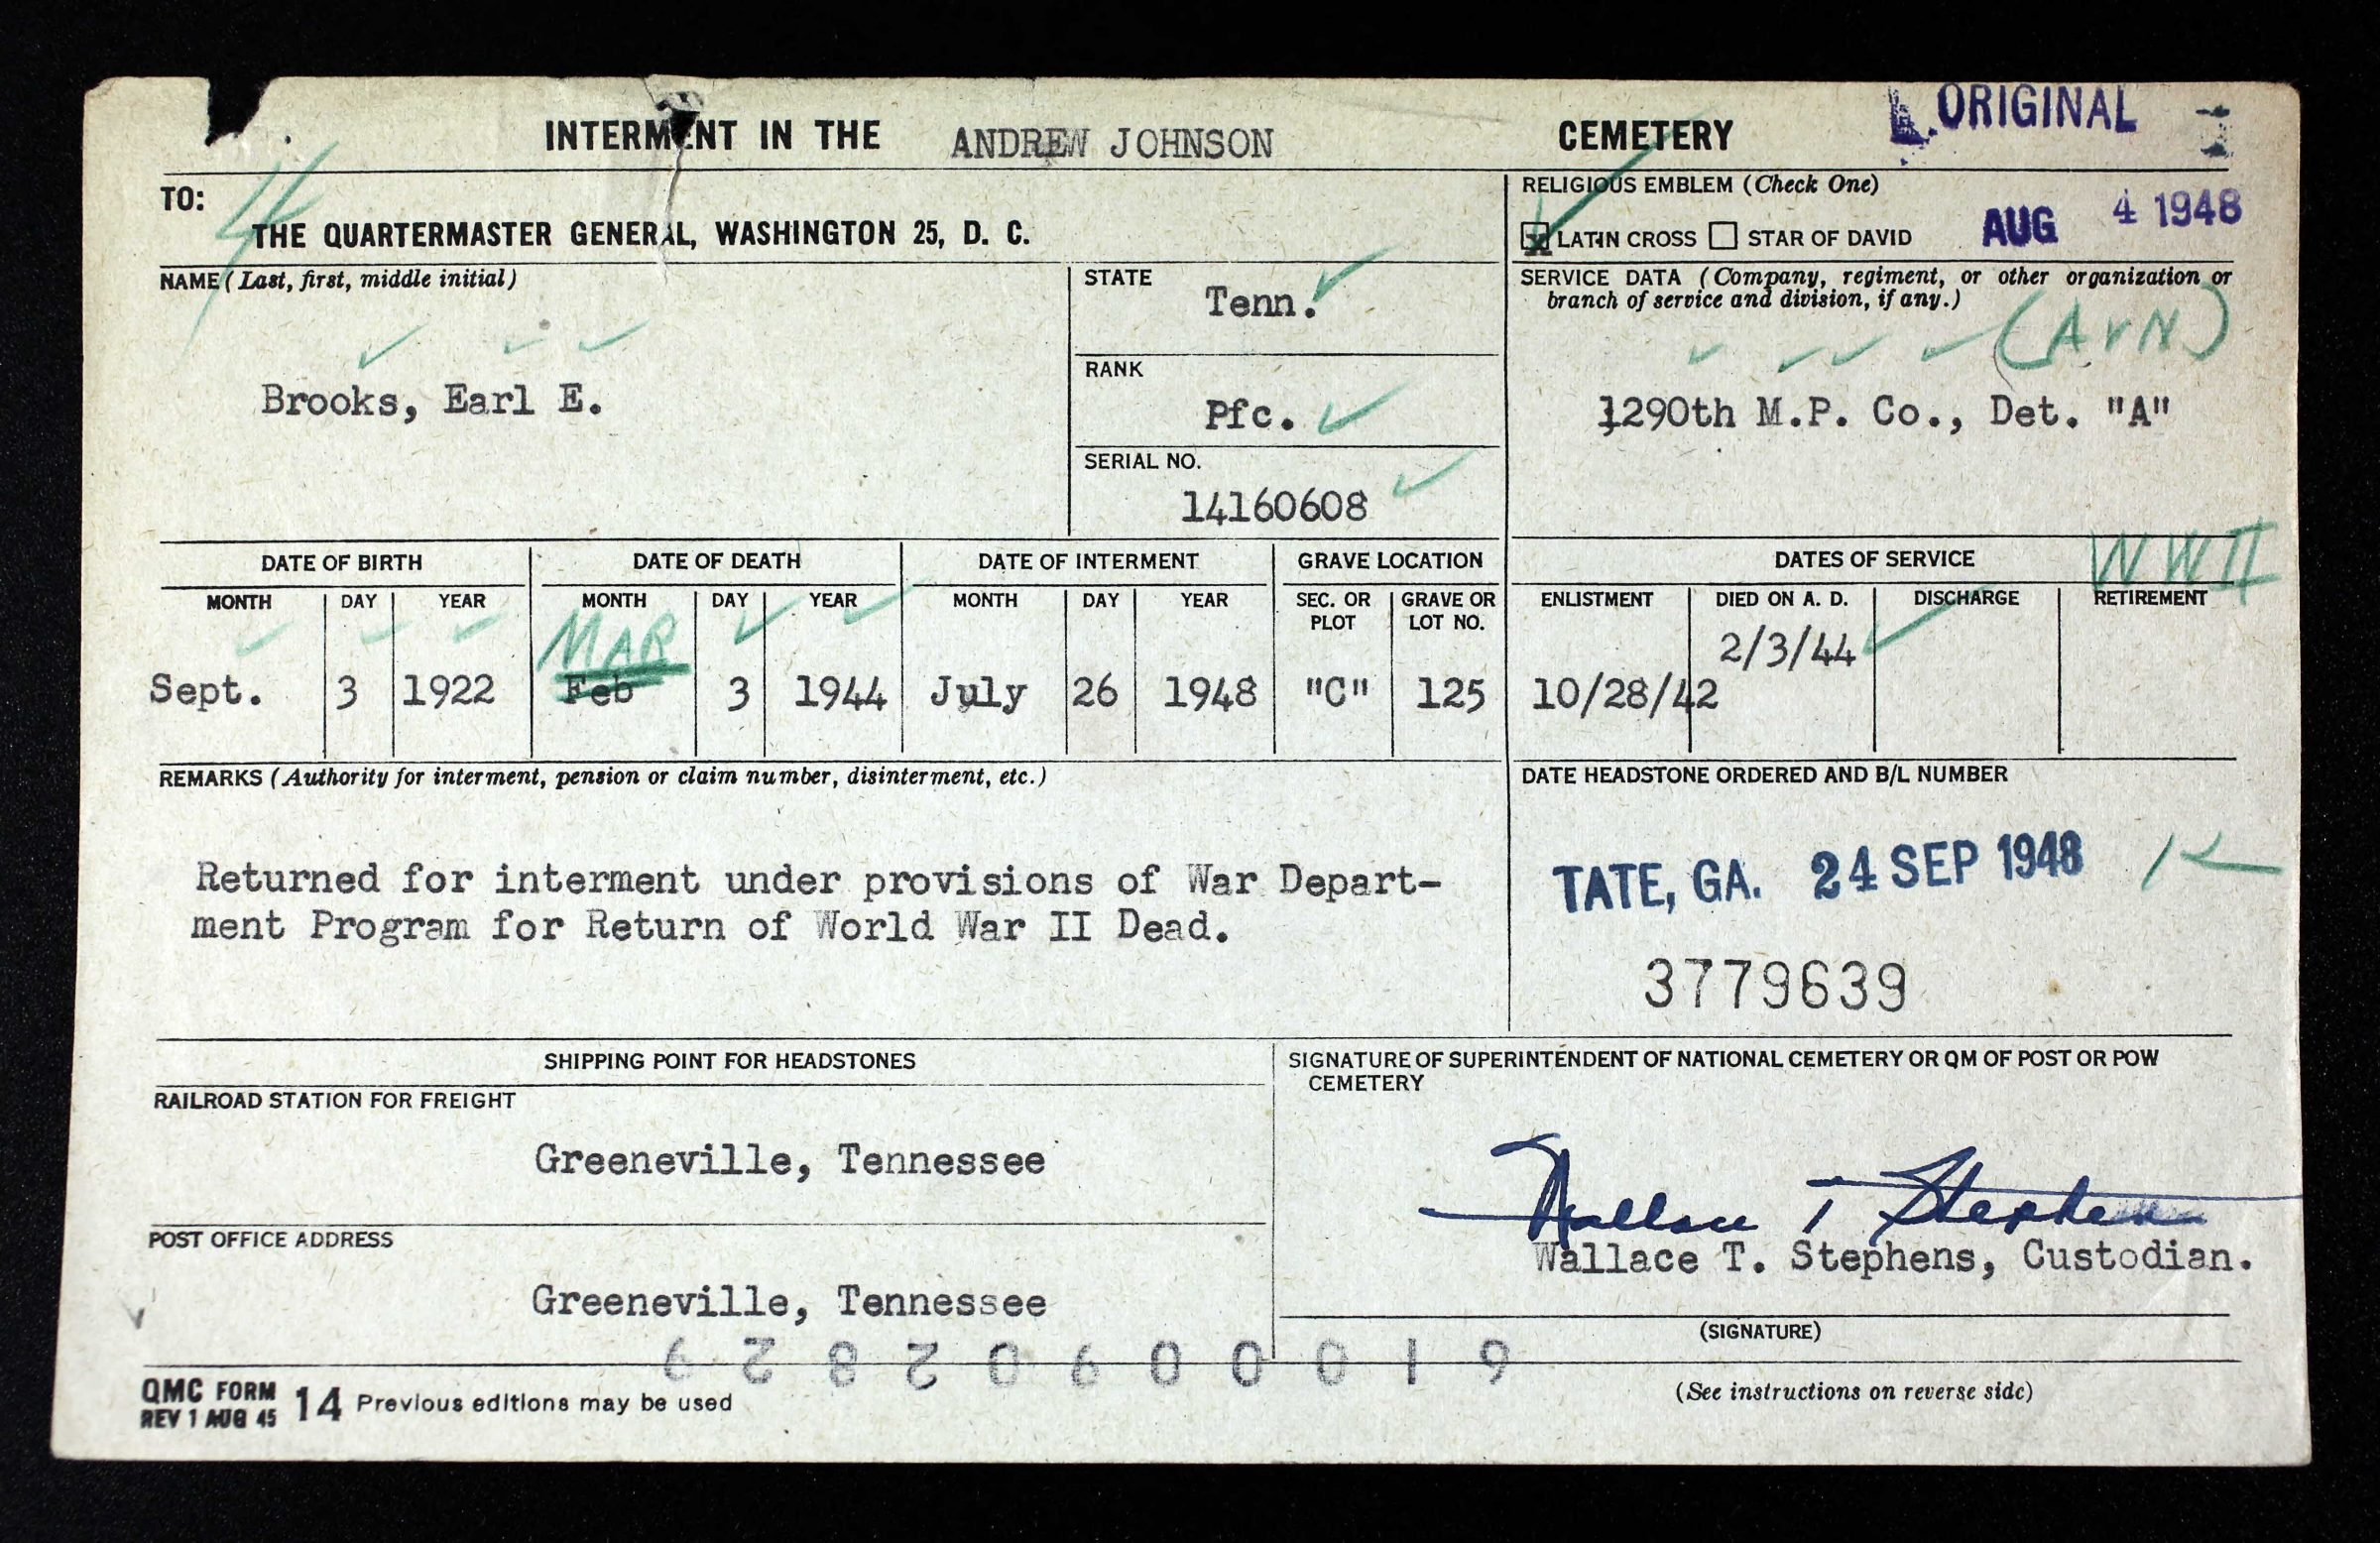 ORIGINAL
INTERMENT IN THE ANDREW JOHNSON CEMETERY
TO:
THE QUARTERMASTER GENERAL, WASHINGTON 25, D. C.
RELIGIOUS EMBLEM (Check One)
x LATIN CROSS STAR OF DAVID
AUG 4 1948
NAME (Last, first, middle initial)
Brooks, Earl E.
STATE
Tenn.
RANK
Pfc.
SERIAL NO.
14160608
SERVICE DATA (Company, regiment, or other organization or
branch of service and division, if any.)
(AVN)
1290th M.P. Co., Det. "A"
WWII
DATE OF BIRTH DATE OF DEATH DATE OF INTERMENT GRAVE LOCATION DATES OF SERVICE
MONTH DAY YEAR MONTH DAY YEAR MONTH DAY YEAR SEC. OR PLOT GRAVE OR LOT NO. ENLISTMENT DIED ON A. D. DISCHARGE RETIREMENT
MAR 2/3/44
Sept. 3 1922 Feb 3 1944 July 26 1948 "C" 125 10/28/42
REMARKS (Authority for interment, pension or claim number, disinterment, etc.)
Returned for interment under provisions of War Depart-
ment Program for Return of World War II Dead.
DATE HEADSTONE ORDERED AND B/L NUMBER
TATE, GA. 24 SEP 1948
3779639
SHIPPING POINT FOR HEADSTONES
RAILROAD STATION FOR FREIGHT
Greeneville, Tennessee
POST OFFICE ADDRESS
Greeneville, Tennessee
SIGNATURE OF SUPERINTENDENT OF NATIONAL CEMETERY OR QM OF POST OR POW
CEMETERY
Wallace T Stephens
Wallace T. Stephens, Custodian.
(SIGNATURE)
(See instructions on reverse side)
QMC FORM 14 Previous editions may be used
REV 1 AUG 45